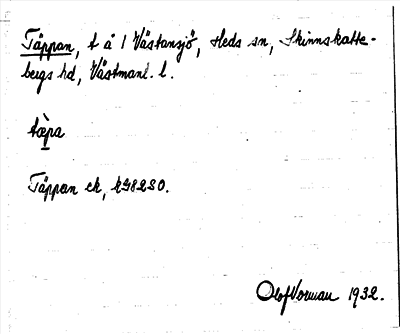 Täppan, t å 1 Västansjö, Heds sn, Skinnskatte-
bergs hd, Västmanl. l.
tɑ̀pa
Täppan ek, 
Olof Vorman 1932.